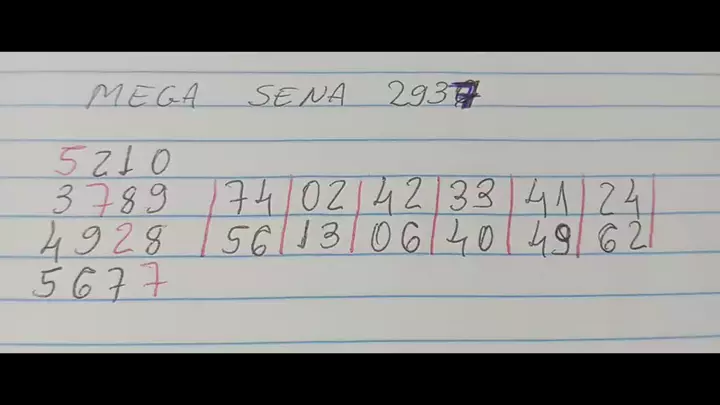 MEGA SENA 2937
5210
3789 74 02 42 33 41 24
4928 56 13 06 40 49 62
5677